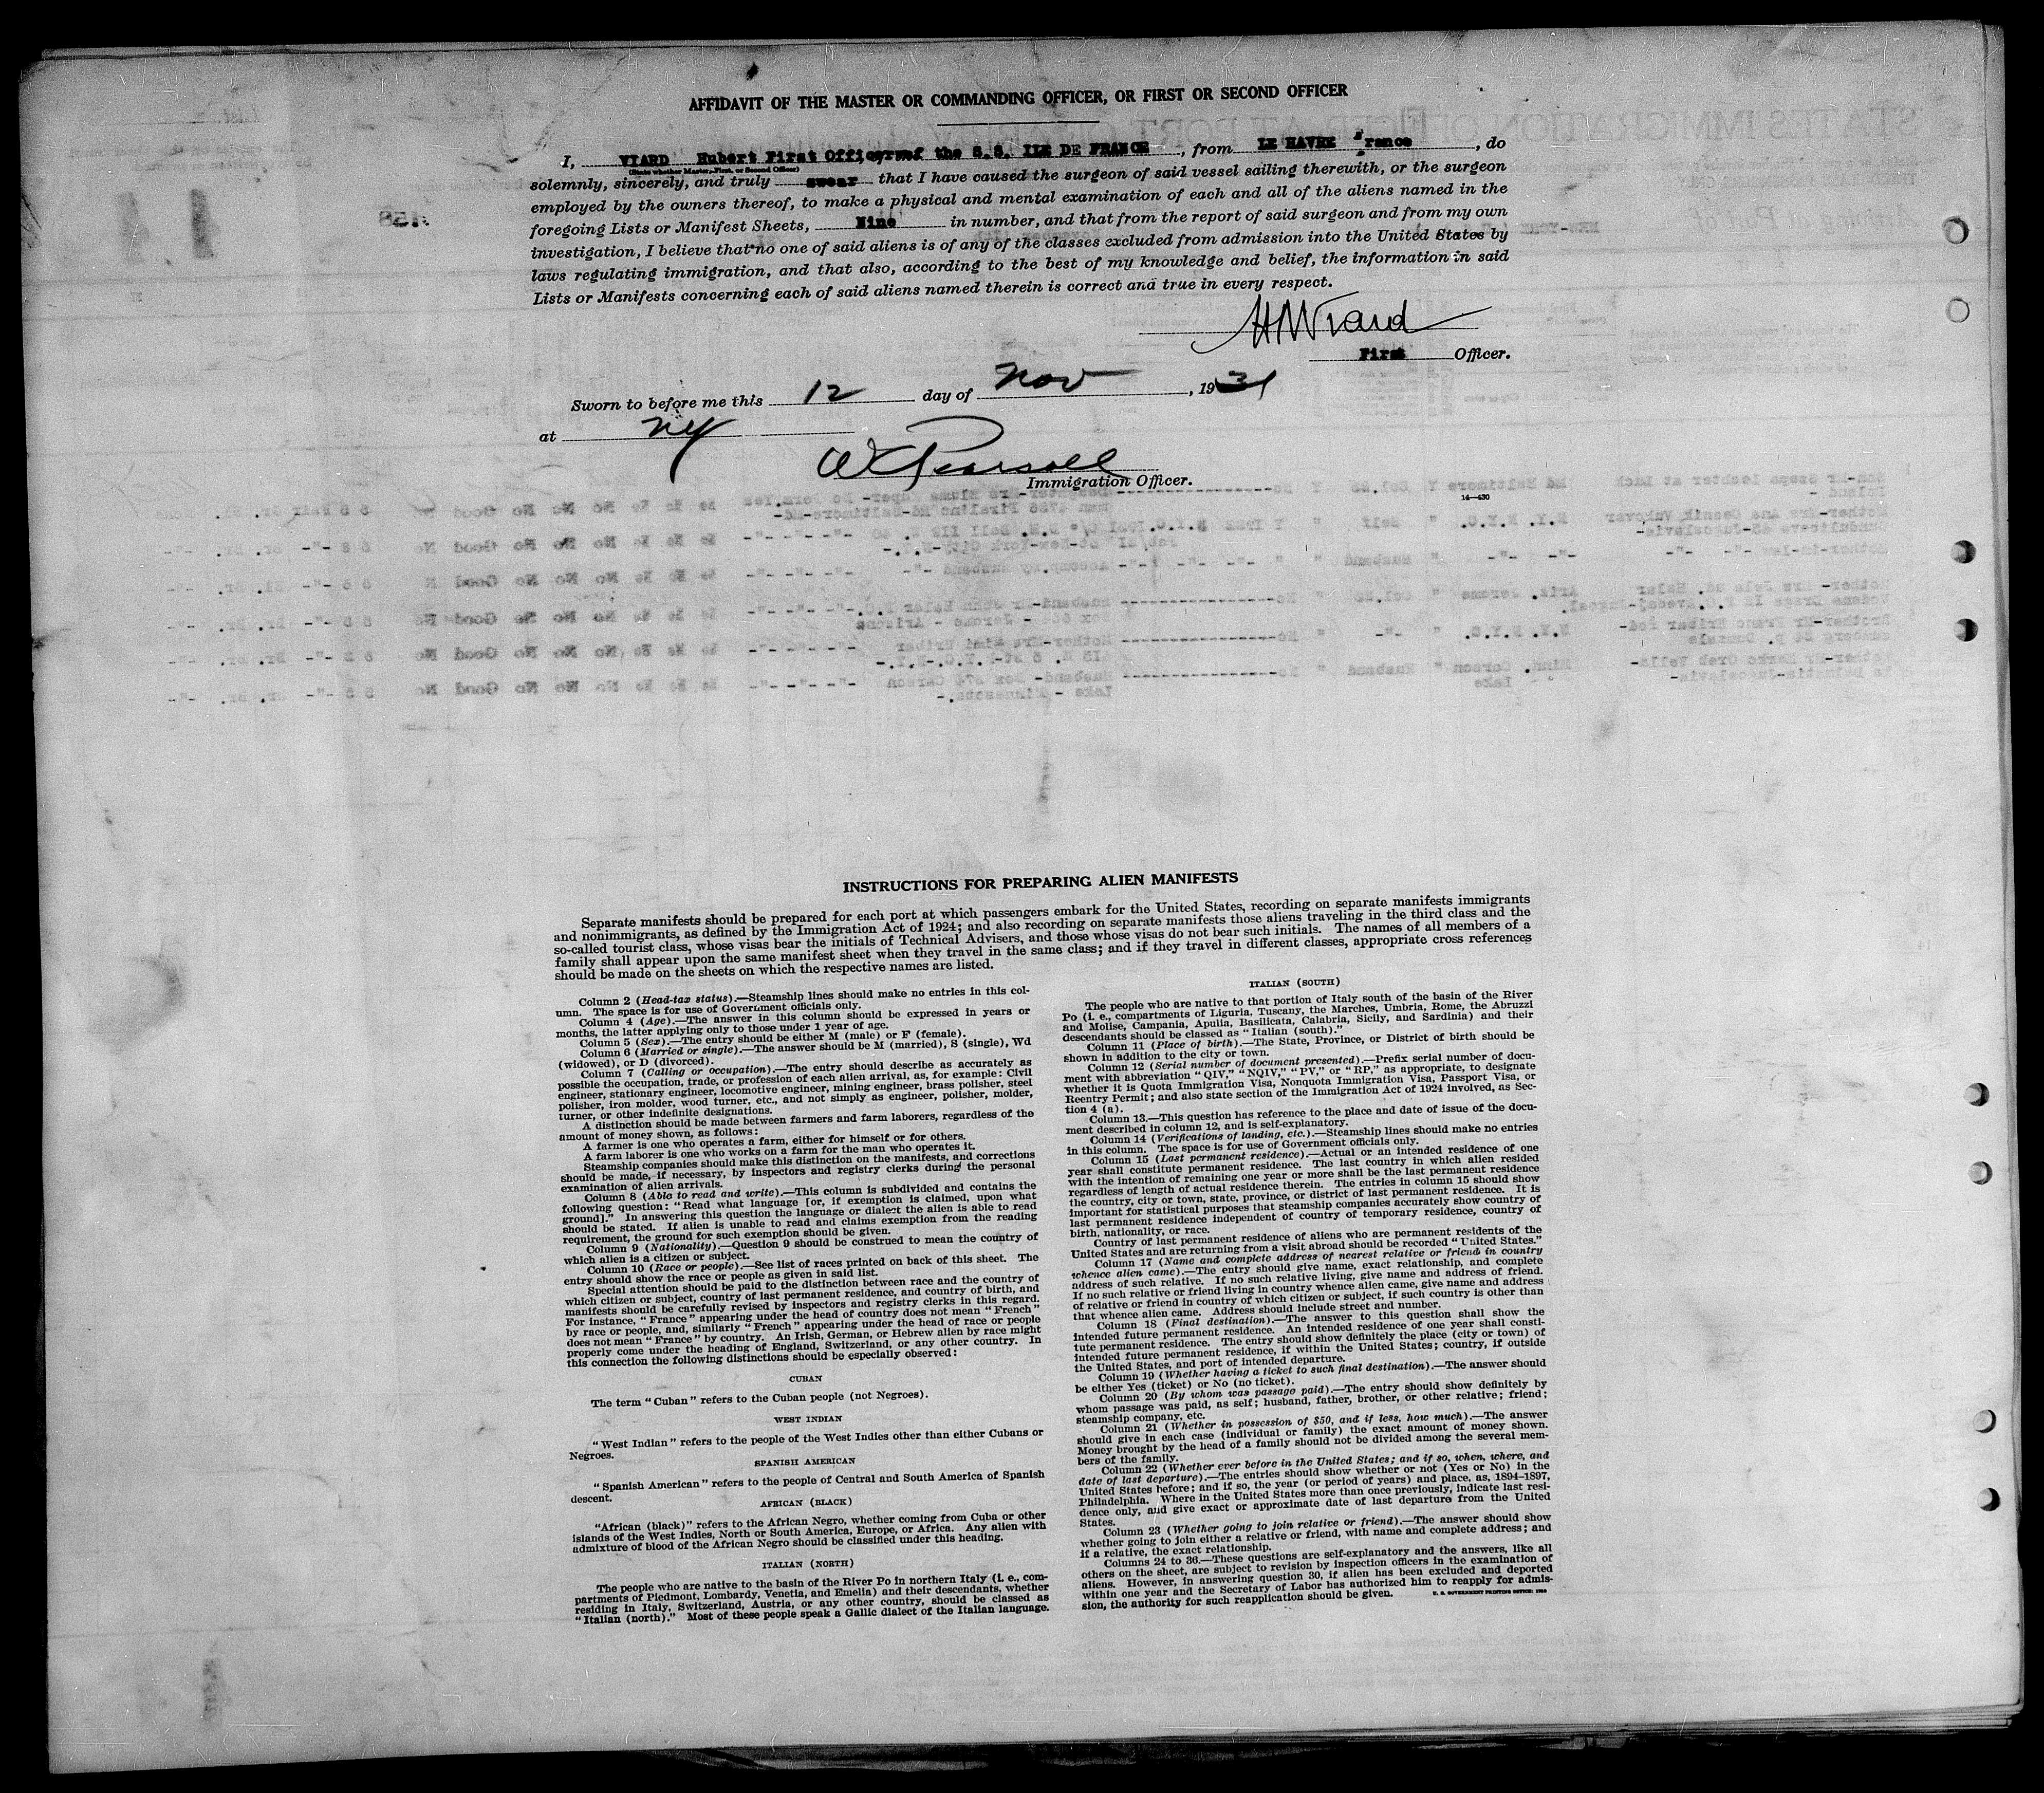 AFFIDAVIT OF THE MASTER OR COMMANDING OFFICER, OR FIRST OR SECOND OFFICER
I, VIARD Hubert First Officer of the S.S. ILE DE FRANCE, from LE HAVRE France, do
(State whether Master, First, or Second Officer)
solemnly, sincerely, and truly swear that I have caused the surgeon of said vessel sailing therewith, or the surgeon
employed by the owners thereof, to make a physical and mental examination of each and all of the aliens named in the
foregoing Lists or Manifest Sheets, Nine in number, and that from the report of said surgeon and from my own
investigation, I believe that no one of said aliens is of any of the classes excluded from admission into the United States by
laws regulating immigration, and that also, according to the best of my knowledge and belief, the information in said
Lists or Manifests concerning each of said aliens named therein is correct and true in every respect.
First Officer.
Sworn to before me this 12 day of Nov, 1931
at NY
Immigration Officer.
14—430
INSTRUCTIONS FOR PREPARING ALIEN MANIFESTS
Separate manifests should be prepared for each port at which passengers embark for the United States, recording on separate manifests immigrants
and nonimmigrants, as defined by the Immigration Act of 1924; and also recording on separate manifests those aliens traveling in the third class and the
so-called tourist class, whose visas bear the initials of Technical Advisers, and those whose visas do not bear such initials. The names of all members of a
family shall appear upon the same manifest sheet when they travel in the same class; and if they travel in different classes, appropriate cross references
should be made on the sheets on which the respective names are listed.
Column 2 (Head-tax status).—Steamship lines should make no entries in this col-
umn. The space is for use of Government officials only.
Column 4 (Age).—The answer in this column should be expressed in years or
months, the latter applying only to those under 1 year of age.
Column 5 (Sex).—The entry should be either M (male) or F (female).
Column 6 (Married or single).—The answer should be M (married), S (single), Wd
(widowed), or D (divorced).
Column 7 (Calling or occupation).—The entry should describe as accurately as
possible the occupation, trade, or profession of each alien arrival, as, for example: Civil
engineer, stationary engineer, locomotive engineer, mining engineer, brass polisher, steel
polisher, iron molder, wood turner, etc., and not simply as engineer, polisher, molder,
turner, or other indefinite designations.
A distinction should be made between farmers and farm laborers, regardless of the
amount of money shown, as follows:
A farmer is one who operates a farm, either for himself or for others.
A farm laborer is one who works on a farm for the man who operates it.
Steamship companies should make this distinction on the manifests, and corrections
should be made, if necessary, by inspectors and registry clerks during the personal
examination of alien arrivals.
Column 8 (Able to read and write).—This column is subdivided and contains the
following question: "Read what language [or, if exemption is claimed, upon what
ground]." In answering this question the language or dialect the alien is able to read
should be stated. If alien is unable to read and claims exemption from the reading
requirement, the ground for such exemption should be given.
Column 9 (Nationality).—Question 9 should be construed to mean the country of
which alien is a citizen or subject.
Column 10 (Race or people).—See list of races printed on back of this sheet. The
entry should show the race or people as given in said list.
Special attention should be paid to the distinction between race and the country of
which citizen or subject, country of last permanent residence, and country of birth, and
manifests should be carefully revised by inspectors and registry clerks in this regard.
For instance, "France" appearing under the head of country does not mean "French"
by race or people, and, similarly "French" appearing under the head of race or people
does not mean "France" by country. An Irish, German, or Hebrew alien by race might
properly come under the heading of England, Switzerland, or any other country. In
this connection the following distinctions should be especially observed:
CUBAN
The term "Cuban" refers to the Cuban people (not Negroes).
WEST INDIAN
"West Indian" refers to the people of the West Indies other than either Cubans or
Negroes.
SPANISH AMERICAN
"Spanish American" refers to the people of Central and South America of Spanish
descent.
AFRICAN (BLACK)
"African (black)" refers to the African Negro, whether coming from Cuba or other
islands of the West Indies, North or South America, Europe, or Africa. Any alien with
admixture of blood of the African Negro should be classified under this heading.
ITALIAN (NORTH)
The people who are native to the basin of the River Po in northern Italy (i. e., com-
partments of Piedmont, Lombardy, Venetia, and Emelia) and their descendants, whether
residing in Italy, Switzerland, Austria, or any other country, should be classed as
"Italian (north)." Most of these people speak a Gallic dialect of the Italian language.
ITALIAN (SOUTH)
The people who are native to that portion of Italy south of the basin of the River
Po (i. e., compartments of Liguria, Tuscany, the Marches, Umbria, Rome, the Abruzzi
and Molise, Campania, Apulia, Basilicata, Calabria, Sicily, and Sardinia) and their
descendants should be classed as "Italian (south)."
Column 11 (Place of birth).—The State, Province, or District of birth should be
shown in addition to the city or town.
Column 12 (Serial number of document presented).—Prefix serial number of docu-
ment with abbreviation "QIV," "NQIV," "PV," or "RP," as appropriate, to designate
whether it is Quota Immigration Visa, Nonquota Immigration Visa, Passport Visa, or
Reentry Permit; and also state section of the Immigration Act of 1924 involved, as Sec-
tion 4 (a).
Column 13.—This question has reference to the place and date of issue of the docu-
ment described in column 12, and is self-explanatory.
Column 14 (Verifications of landing, etc.).—Steamship lines should make no entries
in this column. The space is for use of Government officials only.
Column 15 (Last permanent residence).—Actual or an intended residence of one
year shall constitute permanent residence. The last country in which alien resided
with the intention of remaining one year or more shall be the last permanent residence
regardless of length of actual residence therein. The entries in column 15 should show
the country, city or town, state, province, or district of last permanent residence. It is
important for statistical purposes that steamship companies accurately show country of
last permanent residence independent of country of temporary residence, country of
birth, nationality, or race.
Country of last permanent residence of aliens who are permanent residents of the
United States and are returning from a visit abroad should be recorded "United States."
Column 17 (Name and complete address of nearest relative or friend in country
whence alien came).—The entry should give name, exact relationship, and complete
address of such relative. If no such relative living, give name and address of friend.
If no such relative or friend living in country whence alien came, give name and address
of relative or friend in country of which citizen or subject, if such country is other than
that whence alien came. Address should include street and number.
Column 18 (Final destination).—The answer to this question shall show the
intended future permanent residence. An intended residence of one year shall consti-
tute permanent residence. The entry should show definitely the place (city or town) of
intended future permanent residence, if within the United States; country, if outside
the United States, and port of intended departure.
Column 19 (Whether having a ticket to such final destination).—The answer should
be either Yes (ticket) or No (no ticket).
Column 20 (By whom was passage paid).—The entry should show definitely by
whom passage was paid, as self; husband, father, brother, or other relative; friend;
steamship company, etc.
Column 21 (Whether in possession of $50, and if less, how much).—The answer
should give in each case (individual or family) the exact amount of money shown.
Money brought by the head of a family should not be divided among the several mem-
bers of the family.
Column 22 (Whether ever before in the United States; and if so, when, where, and
date of last departure).—The entries should show whether or not (Yes or No) in the
United States before; and if so, the year (or period of years) and place, as, 1894–1897,
Philadelphia. Where in the United States more than once previously, indicate last resi-
dence only, and give exact or approximate date of last departure from the United
States.
Column 23 (Whether going to join relative or friend).—The answer should show
whether going to join either a relative or friend, with name and complete address; and
if a relative, the exact relationship.
Columns 24 to 36.—These questions are self-explanatory and the answers, like all
others on the sheet, are subject to revision by inspection officers in the examination of
aliens. However, in answering question 30, if alien has been excluded and deported
within one year and the Secretary of Labor has authorized him to reapply for admis-
sion, the authority for such reapplication should be given.
U. S. GOVERNMENT PRINTING OFFICE